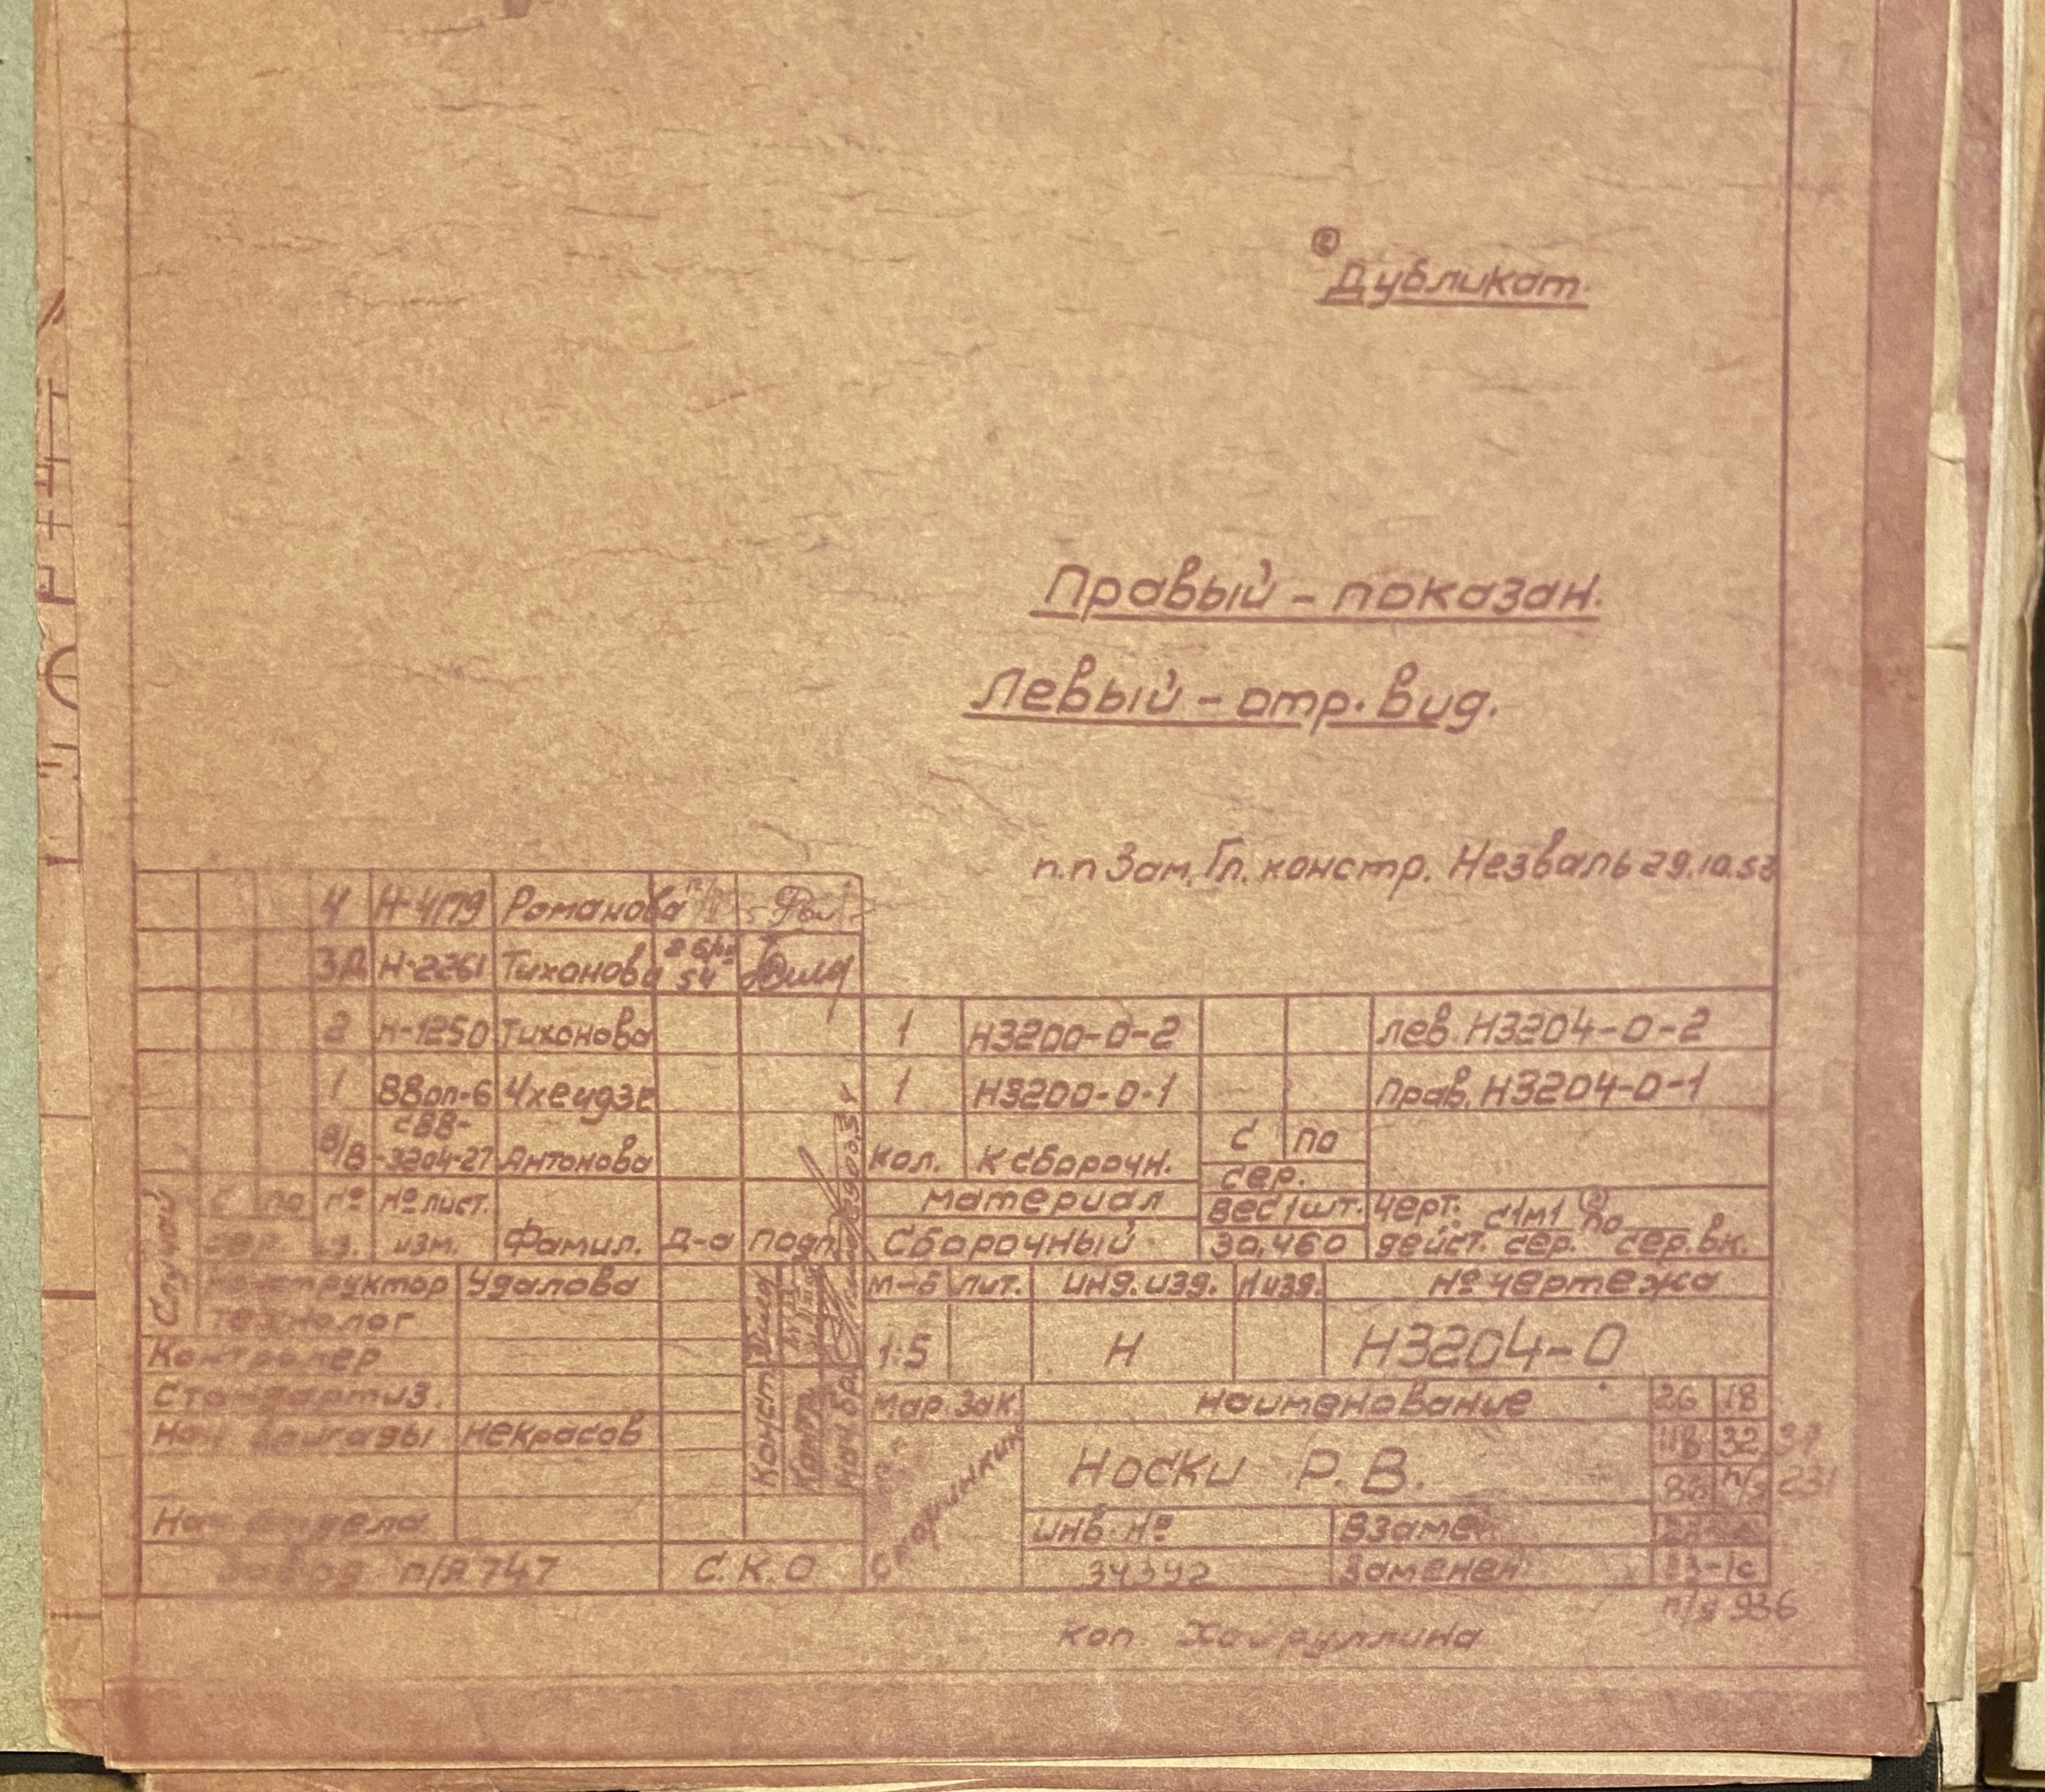 ② Дубликат.
Правый - показан.
Левый - отр. вид.
п.п Зам. Гл. констр. Незваль 29.10.53
4 Н-4179 Романова
3Д Н-2261 Тихонова 54
2 Н-1250 Тихонова
1 ВВоп-6 Чхеидзе
В/В СВВ-3204-27 Антонова
с по № № лист. Фамил. Д-а подп.
сер. из. изм.
Случай
1 Н3200-0-2 лев. Н3204-0-2
1 Н3200-0-1 Прав. Н3204-0-1
кол. к сборочн. с по
сер.
материал вес 1 шт. черт. с 1м1 ② по
Сборочный 30,460 дейст. сер. сер. вк.
Конструктор Удалова
Технолог
Контролер
Стандартиз.
Нач бригады Некрасов
Нач отдела
Завод п/я 747 С.К.О
Конст.
Контр.
Нач. бр.
м-б лит. инд. изд. № изд. № чертежа
1:5 Н Н3204-0
мар. зак. наименование 26 18
Носки Р. В. 32
инв. № Взамен
34342 Заменен 23-1с
п/я 936
коп. Хайруллина